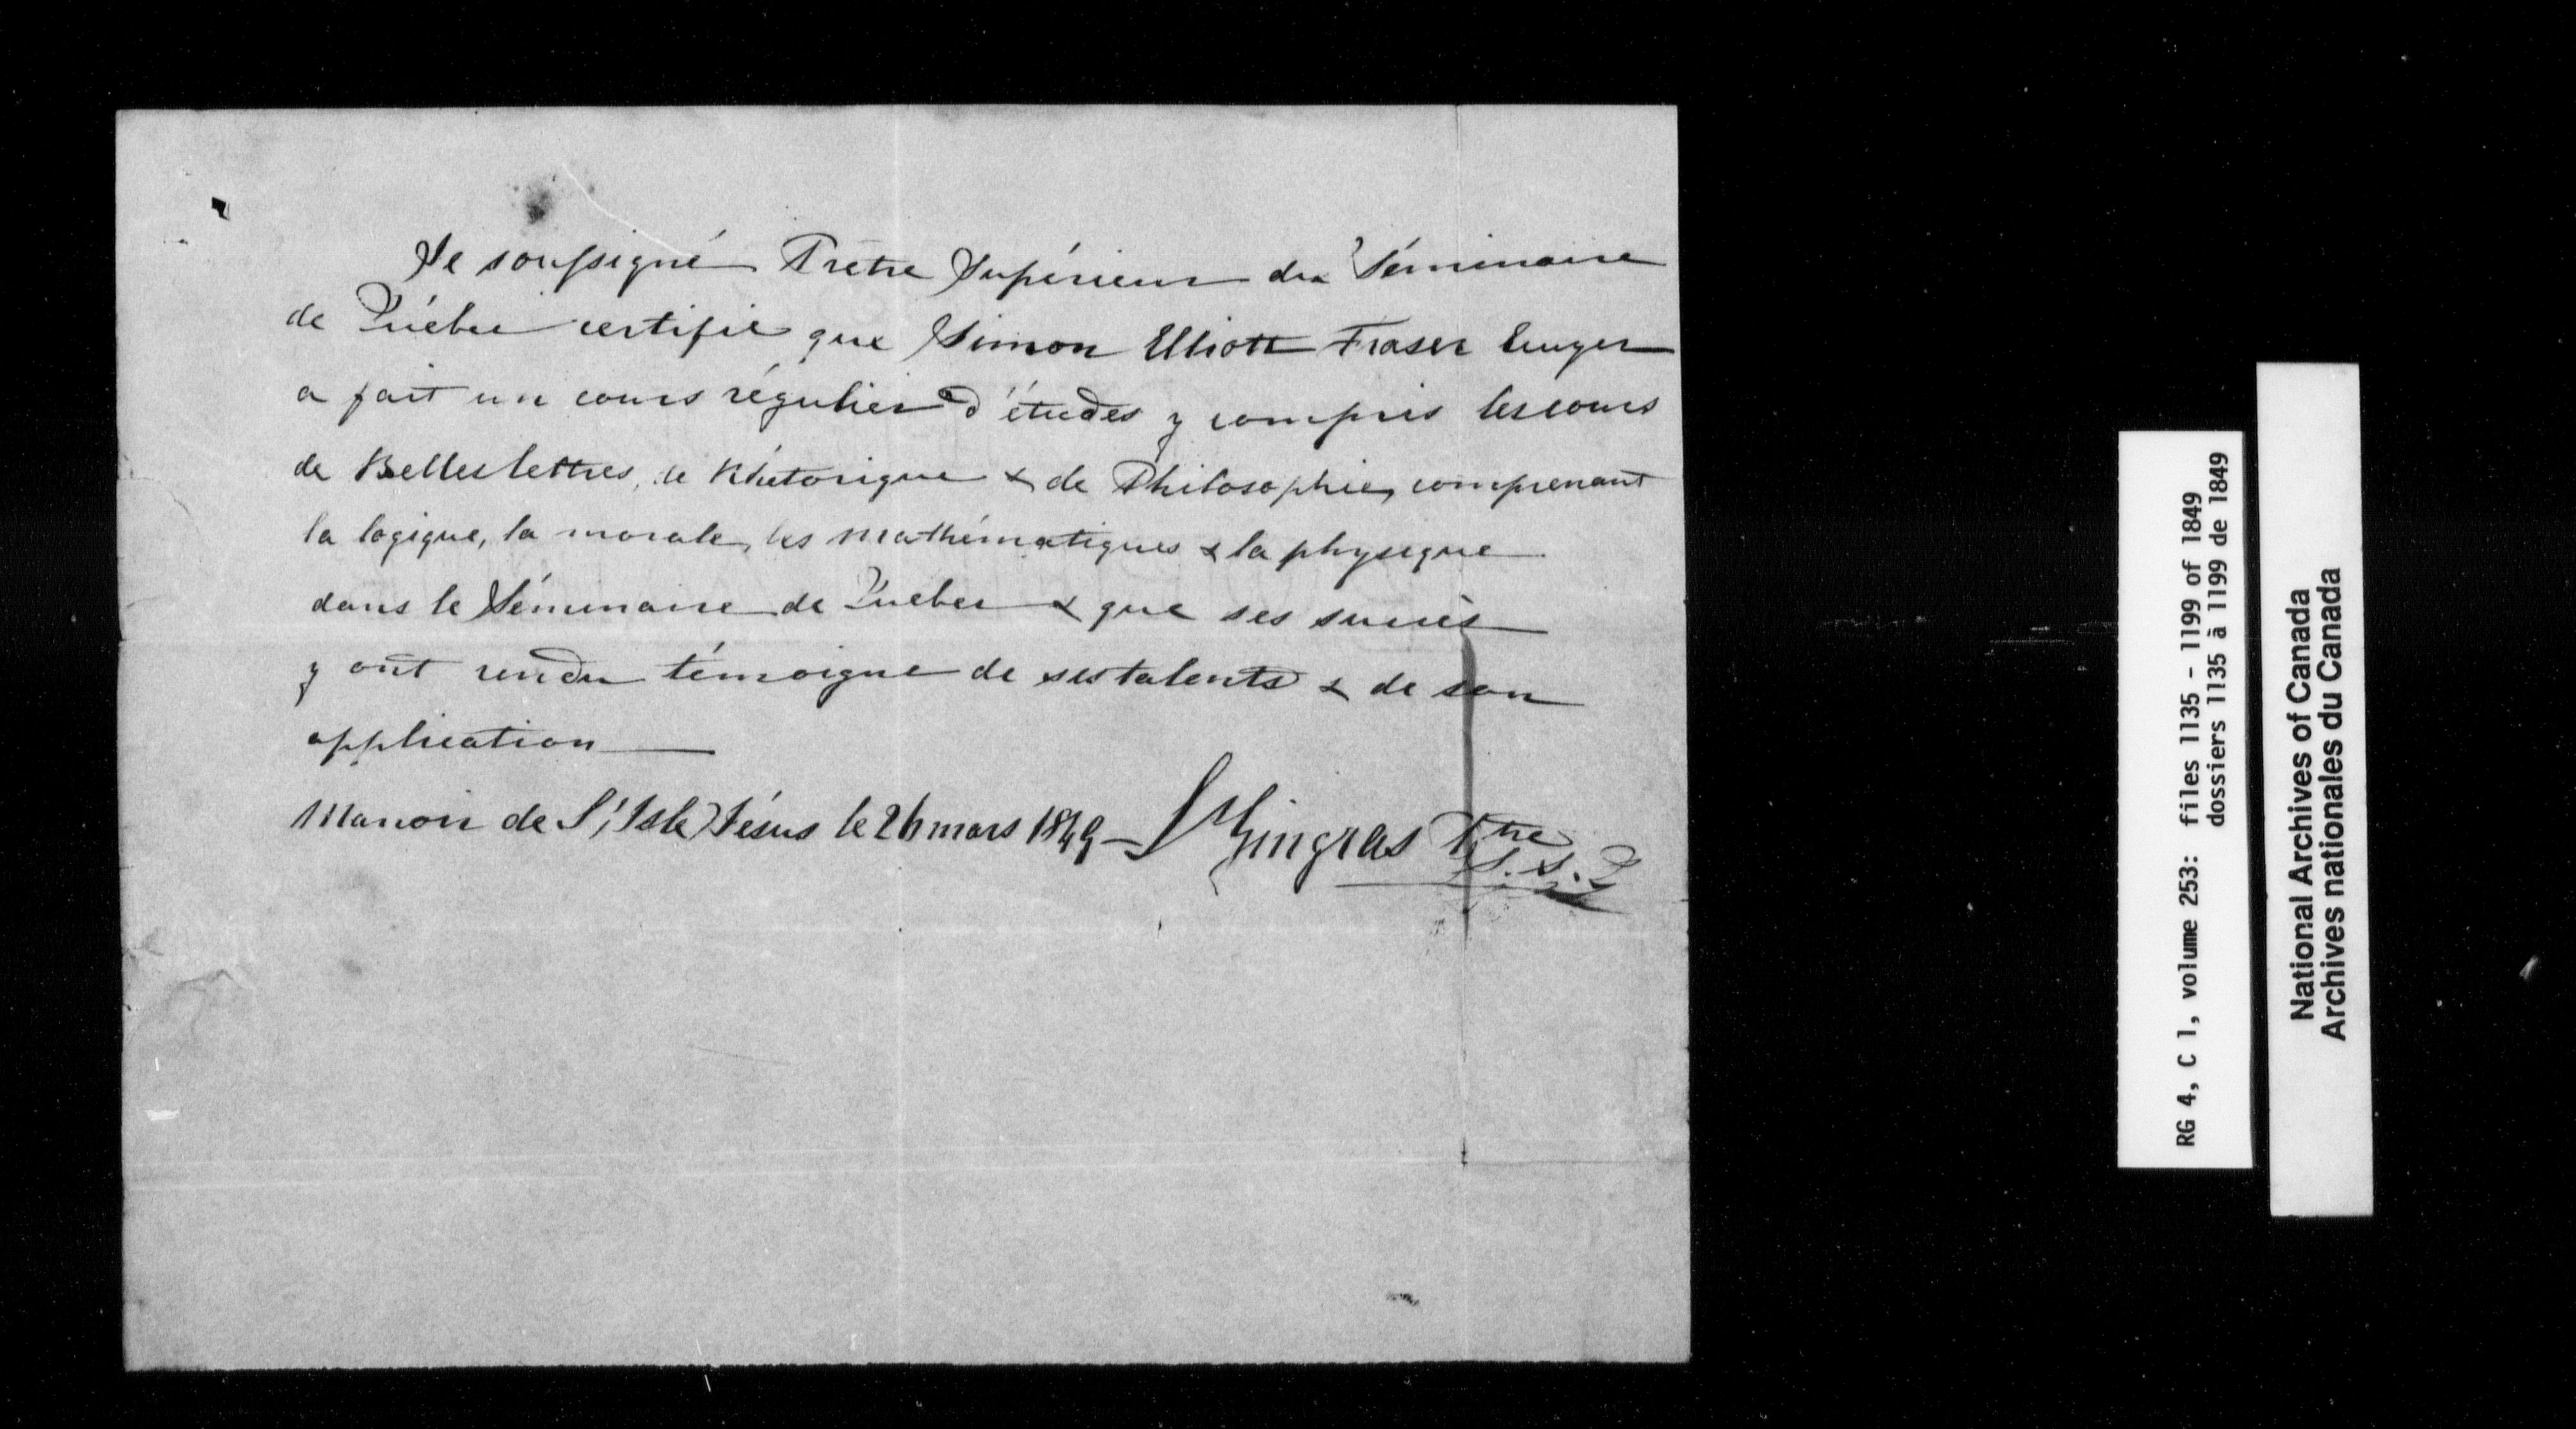 Je soussigné Prêtre Supérieur du Séminaire
de Québec certifie que Simon Elliott Fraser
a fait un cours régulier d'études y compris les cours
de Belles lettres, de Rhétorique & de Philosophie, comprenant
la logique, la morale, les mathématiques & la physique
dans le Séminaire de Québec & que ses succès
y ont rendu témoigne de ses talents & de son
application
Manoir de l'Isle Jésus le 26 mars 1849 - Gingras Ptre
S.S.Q
RG 4, C 1, volume 253: files 1135 - 1199 of 1849
dossiers 1135 à 1199 de 1849
National Archives of Canada
Archives nationales du Canada